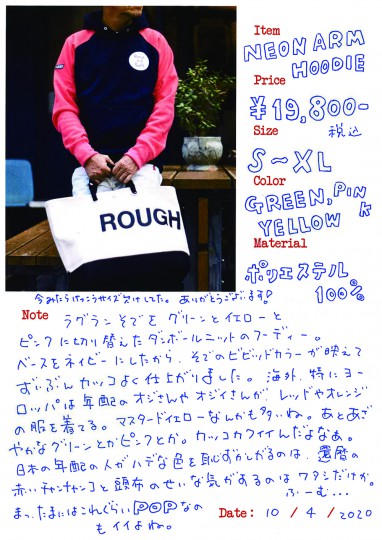 Item
NEON ARM
HOODIE
Price
¥19,800-
税込
Size
S〜XL
Color
GREEN, PINK
YELLOW
Material
ポリエステル
100%
ROUGH
今みたらけっこうサイズ欠けしてた。ありがとうございます!
Note
ラグランそでをグリーンとイエローと
ピンクに切り替えたダンボールニットのフーディー。
ベースをネイビーにしたから、そでのビビッドカラーが映えて
ずいぶんカッコよく仕上がりました。海外、特にヨー
ロッパは年配のオジさんやオジイさんが、レッドやオレンジ
の服を着てる。マスタードイエローなんかも多いね。あとあざ
やかなグリーンとかピンクとか。カッコカワイイんだよなぁ。
日本の年配の人がハデな色を恥ずかしがるのは、還暦の
赤いチャンチャンコと頭巾のせいな気がするのはワタシだけか。
ふーむ...
まっ、たまにはこれぐらいPOPなの
もイイよね。
Date: 10 / 4 / 2020